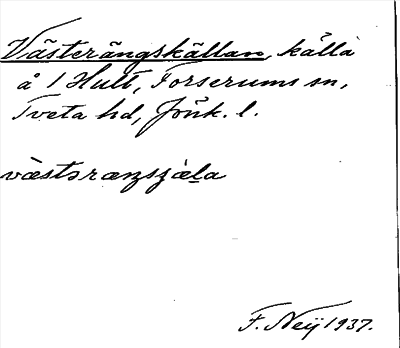 Västerängskällan, källa
å 1 Hult, Forserums sn,
Tveta hd, Jönk. l.
västəræŋsɟæla
F. Neÿ 1937.